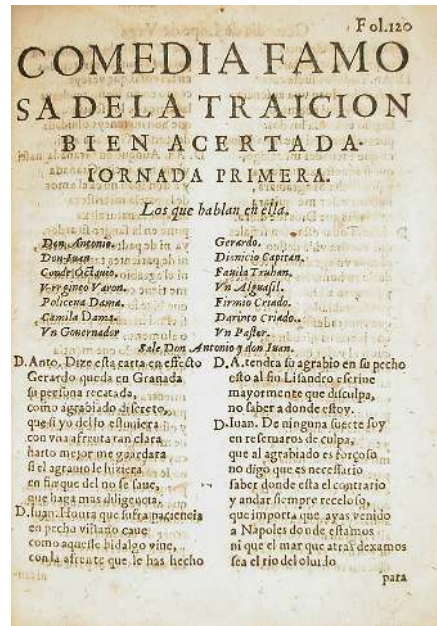 Fol.120
COMEDIA FAMO
SA DE LA TRAICION
BIEN ACERTADA.
IORNADA PRIMERA.
Los que hablan en ella.
Don Antonio.
Don Iuan
Conde Octauio.
Verginео Varon.
Policena Dama.
Camila Dama.
Vn Gouernador
Gerardo.
Dionicio Capitan.
Fauila Truhan.
Vn Alguasil.
Firmio Criado.
Darinto Criado.
Vn Pastor.
Sale Don Antonio y don Iuan.
D. Anto. Dize esta carta en effecto
Gerardo queda en Granada
su persona recatada,
como agrabiado discreto,
que si yo desso estuuiera
con vna afrenta tan clara
harto mejor me guardara
si el agrauio le hiziera
en fin que del no se saue,
que haga mas diligencia,
D. Iuan. Honra que sufra paciencia
en pecho villano caue
como aquesse hidalgo viue,
con la afrente que le has hecho
D. A. tendra su agrabio en su pecho
esto al fin Lisandro escriue
mayormente que disculpa,
no saber a donde estoy.
D. Iuan. De ninguna suerte soy
en reseruaros de culpa,
que al agrabiado es forçoso
no digo que es necessario
saber donde esta el contrario
y andar siempre receloso,
que importa que ayas venido
a Napoles donde estamos
ni que el mar que atras dexamos
sea el rio del oluido
para